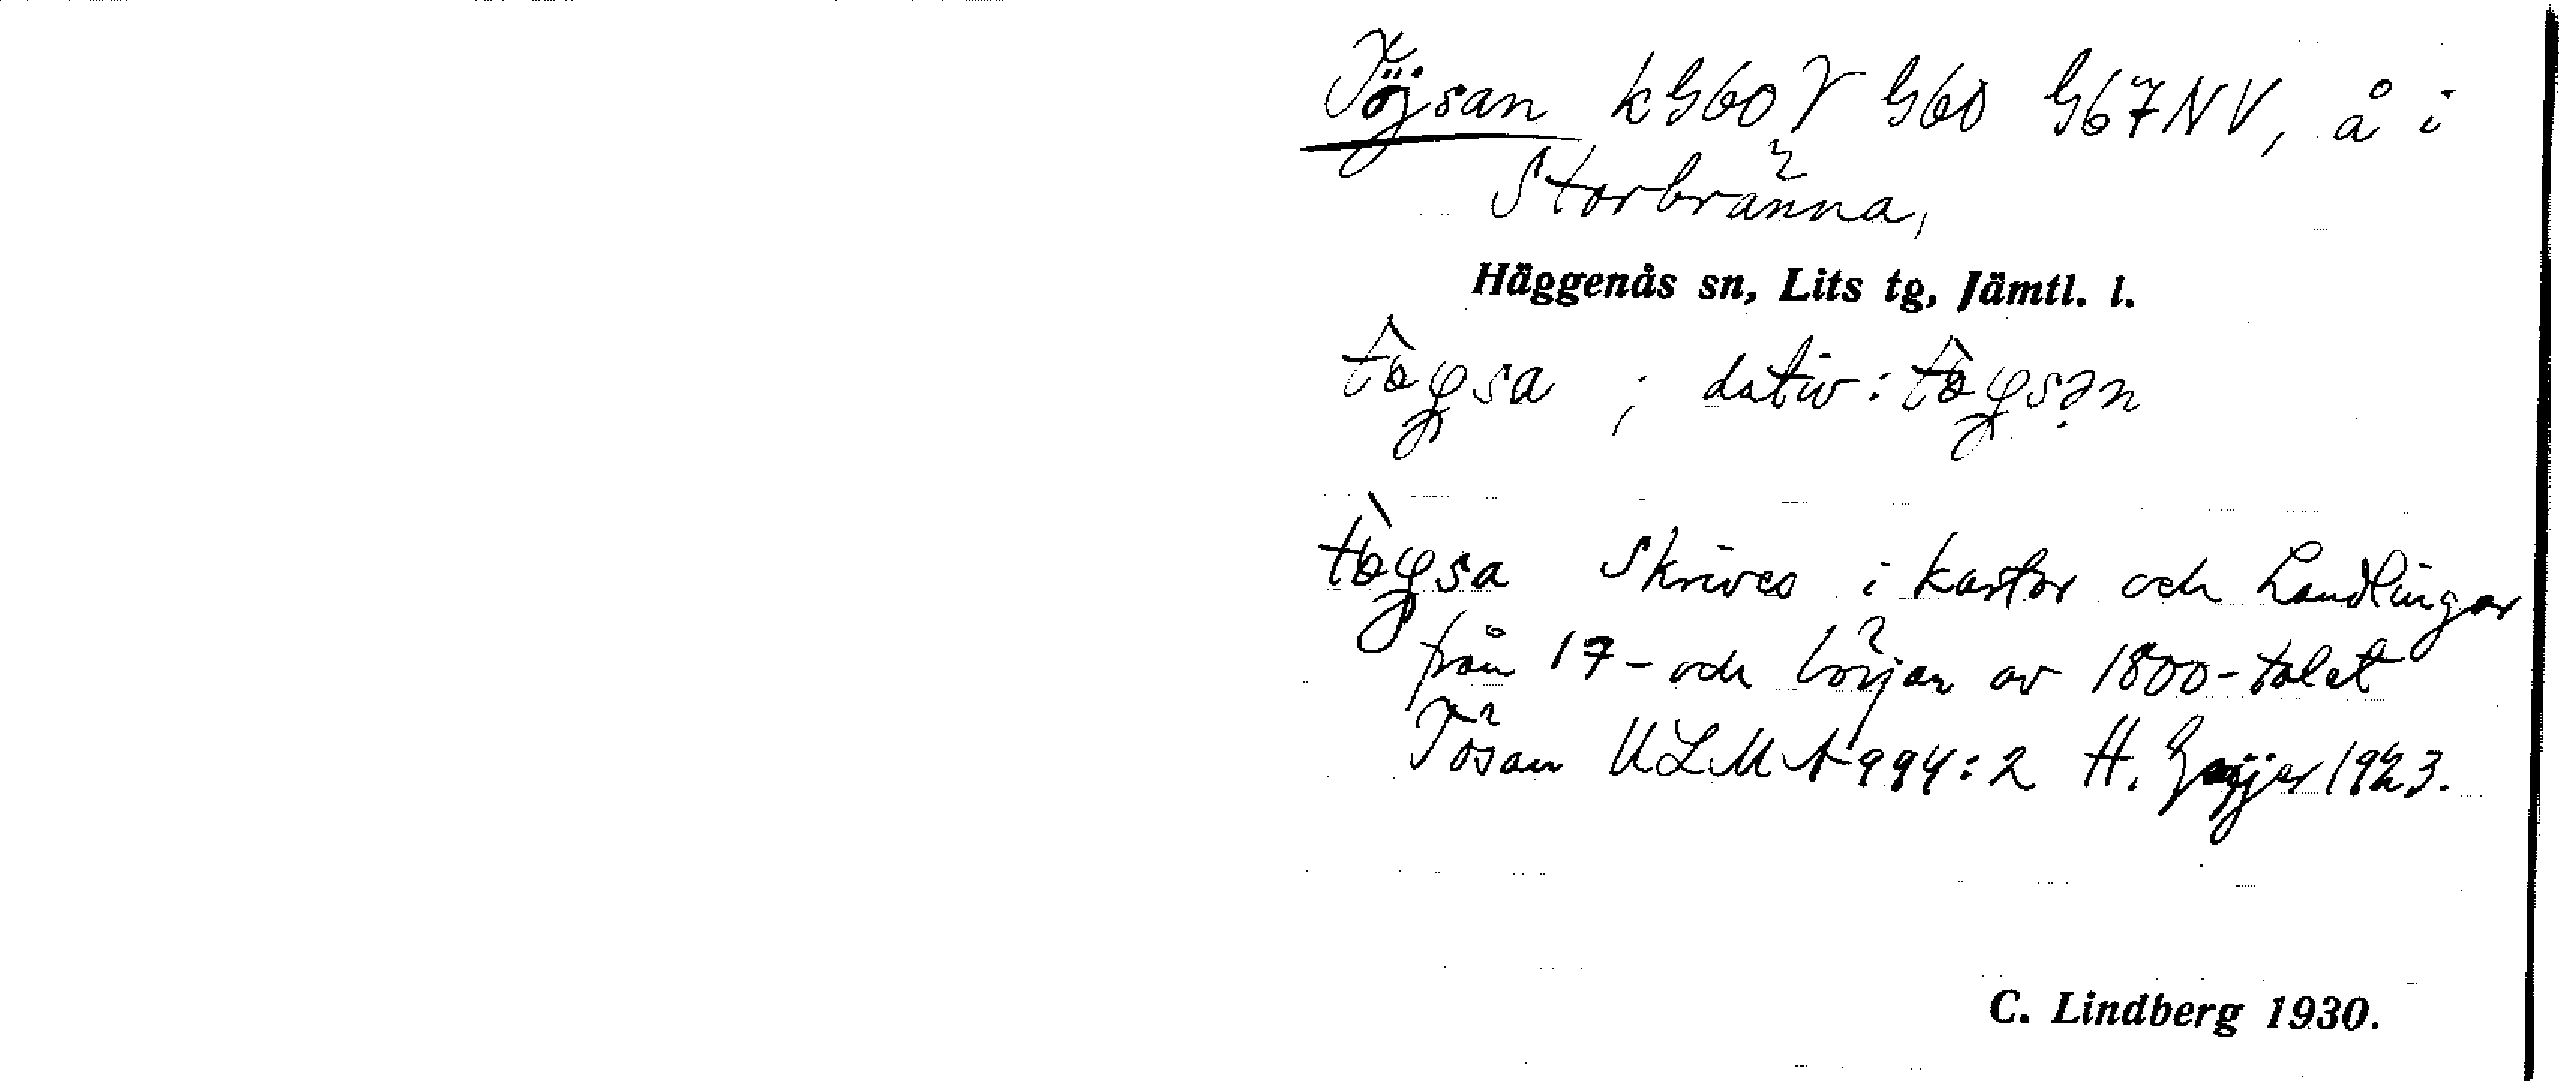 Töjsan kG60V G60 G67NV, å i
Storbränna,
Häggenås sn, Lits tg, Jämtl. l.
; dativ:
Skrives i kartor och handlingar
från 17- och början av 1800-talet
Tösan ULMA 994:2 H. Geijer 1923.
C. Lindberg 1930.